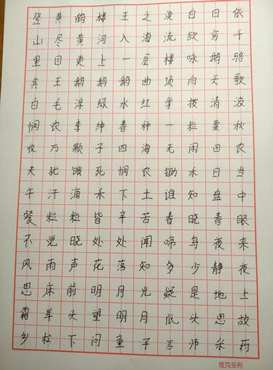 登黄鹤楼王之涣白日依
山尽黄河入海流欲穷千
里目更上一层楼咏鹅骆
宾王鹅鹅鹅曲项向天歌
白毛浮绿水红掌拨清波
悯农李绅春种一粒粟秋
收万颗子四海无闲田农
夫犹饿死悯农锄禾日当
午汗滴禾下土谁知盘中
餐粒粒皆辛苦春晓春眠
不觉晓处处闻啼鸟夜来
风雨声花落知多少静夜
思床前明月光疑是地上
霜举头望明月低头思故
乡松下问童子言师采药